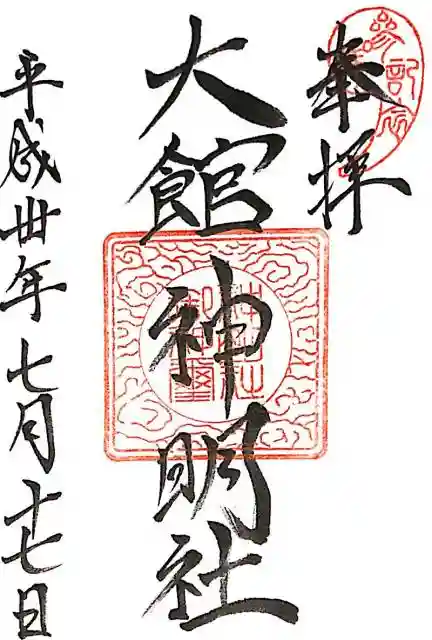 奉拝
大館神明社
平成丗年七月十七日